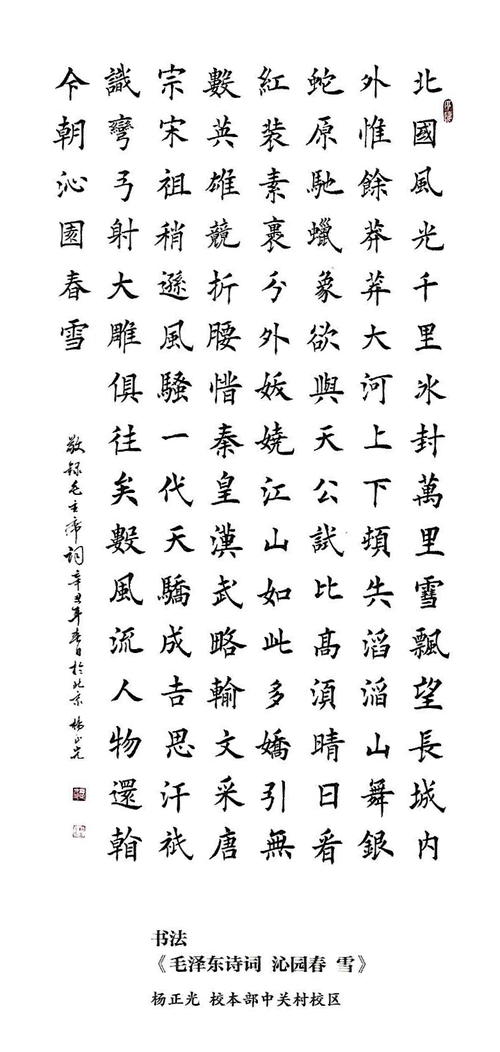 北國風光千里氷封萬里雪飄望長城内
外惟餘莽莽大河上下頓失滔滔山舞銀
蛇原馳蠟象欲與天公試比高須晴日看
紅装素裹分外妖嬈江山如此多嬌引無
數英雄競折腰惜秦皇漢武略輸文采唐
宗宋祖稍遜風騷一代天驕成吉思汗祇
識彎弓射大雕俱往矣數風流人物還看
今朝沁園春雪
敬録毛主席詞辛丑年春日於北京 楊正光
书法
《毛泽东诗词 沁园春 雪》
杨正光 校本部中关村校区